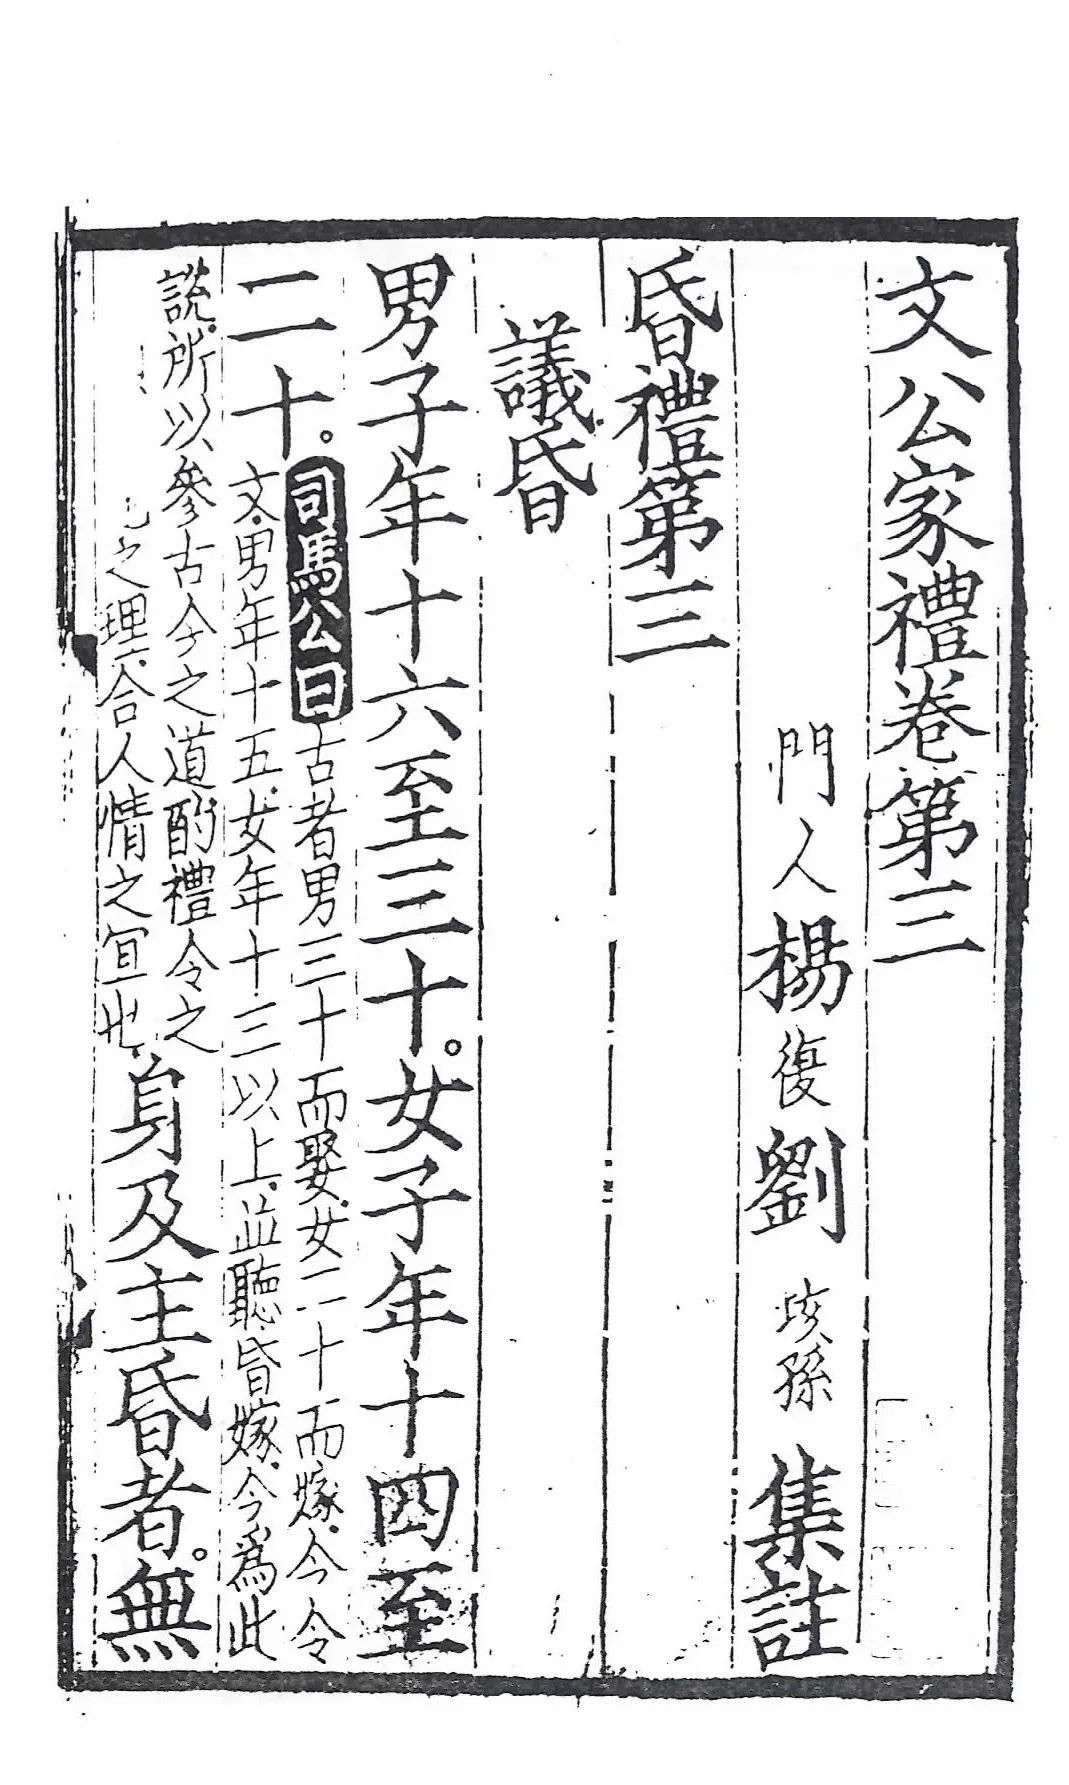 文公家禮卷第三
門人楊復劉垓孫集註
昏禮第三
議昏
男子年十六至三十。女子年十四至
二十。司馬公曰古者男三十而娶.女二十而嫁.今令
文.男年十五.女年十三以上.並聽昏嫁.今爲此
說.所以參古今之道.酌禮令之
之理.合人情之宜也.身及主昏者。無